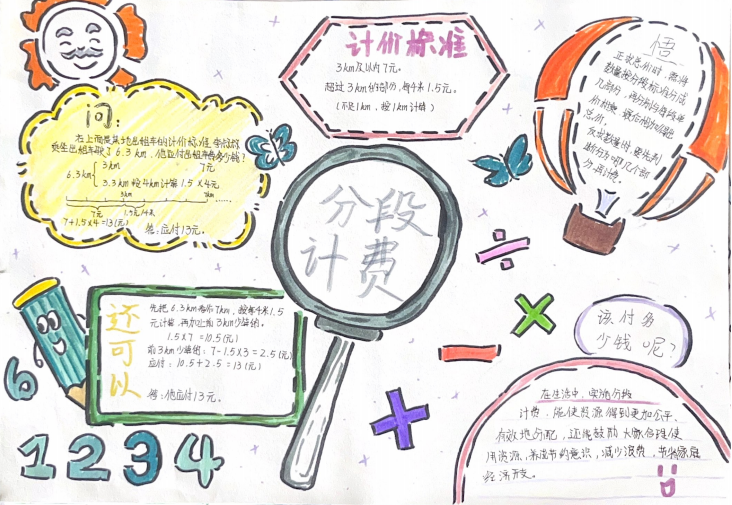 计价标准
3km及以内7元。
超过3km的部分,每千米1.5元。
(不足1km,按1km计算)
悟
正求总价时,需将
数量按分段标准分成
几部分,再分别与每段单
价相乘,最后相加得出
总价。
反求数量时,要先判
断分为哪几个部
分再计算。
问:
右上面是某地出租车的计价标准,
乘坐出租车行了6.3km,他应付出租车费多少钱?
3km 7元
6.3km
3.3km按4km计算 1.5×4元
3km
7元 1.5元/千米
7+1.5×4=13(元)
答:应付13元。
分段
计费
还可以
先把6.3km看作7km,按每千米1.5
元计算,再加上前3km少算的。
1.5×7=10.5(元)
前3km少算的:7-1.5×3=2.5(元)
应付:10.5+2.5=13(元)
答:他应付13元。
该付多
少钱呢?
在生活中,实施分段
计费,能使资源得到更加公平、
有效地分配,还能鼓励大家合理使
用资源,养成节约意识,减少浪费,节约家庭
经济开支。
6
1234